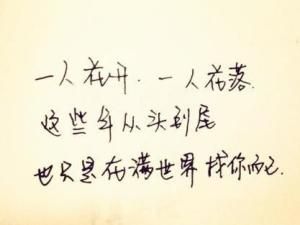 一人花开.一人花落.
这些年从头到尾
也只是在满世界找你而已.